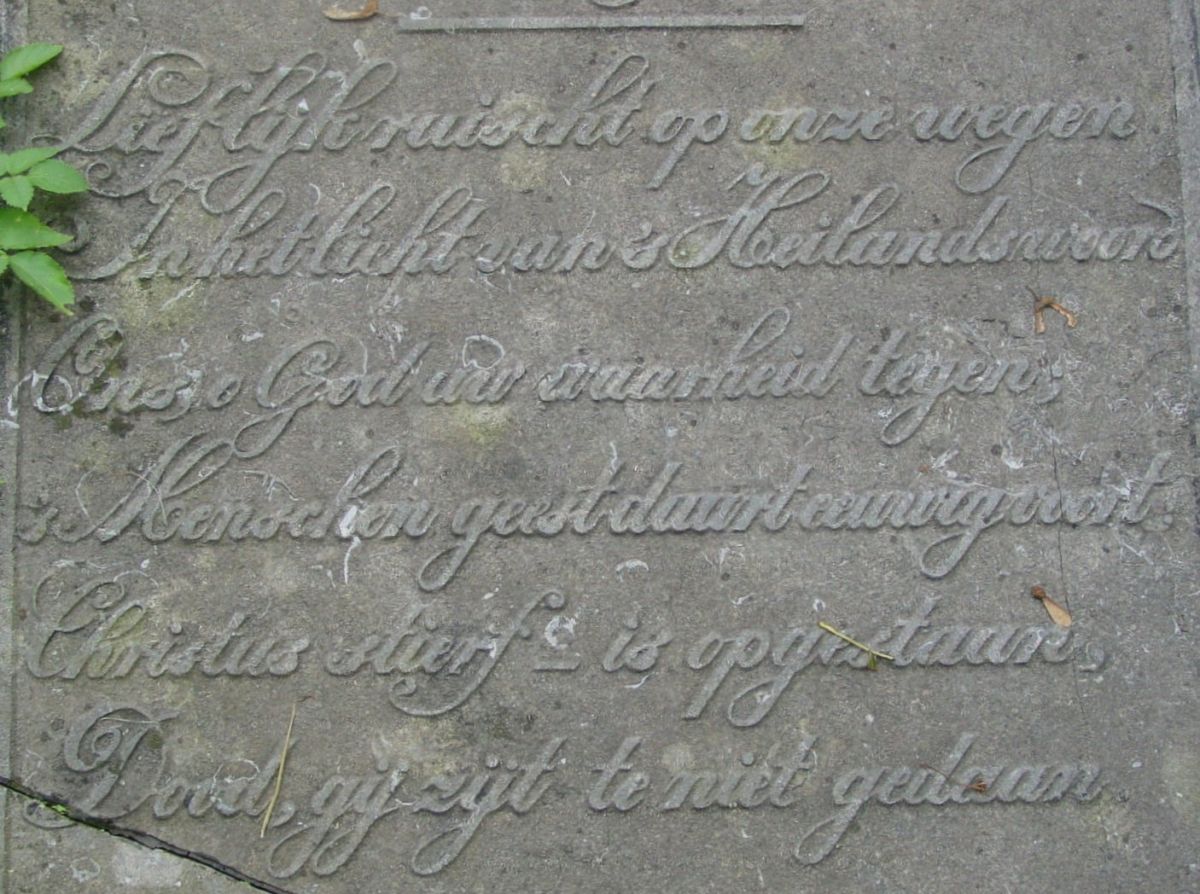 Lieflijk ruischt op onze wegen
In het licht van 's Heilands woord
Ons, o God uw waarheid tegen;
's Menschen geest duurt eeuwig voort.
Christus stierf – is opgestaan,
Dood, gij zijt te niet gedaan